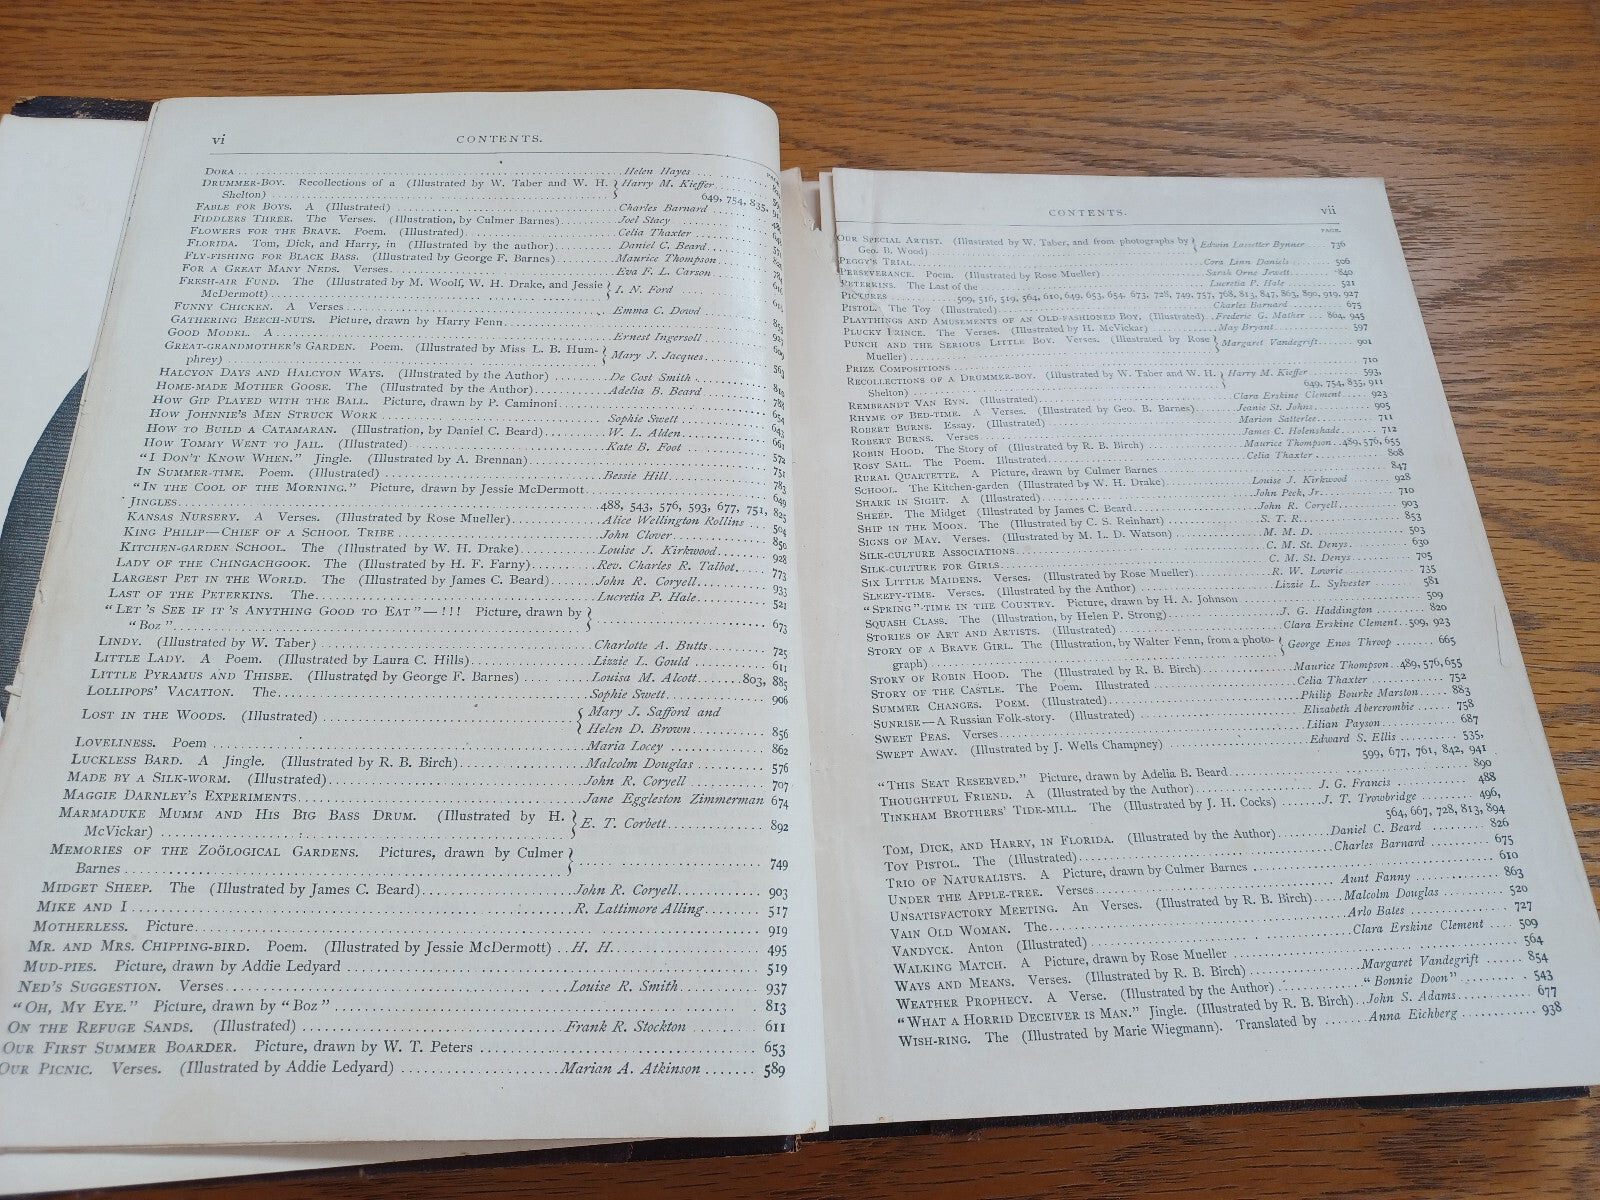 vi
CONTENTS.
DORA Helen Hayes
DRUMMER-BOY. Recollections of a (Illustrated by W. Taber and W. H. Shelton) Harry M. Kieffer 649, 754, 835,
FABLE FOR BOYS. A (Illustrated) Charles Barnard
FIDDLERS THREE. The Verses. (Illustration, by Culmer Barnes) Joel Stacy
FLOWERS FOR THE BRAVE. Poem. (Illustrated) Celia Thaxter
FLORIDA. Tom, Dick, and Harry, in (Illustrated by the author) Daniel C. Beard
FLY-FISHING FOR BLACK BASS. (Illustrated by George F. Barnes) Maurice Thompson
FOR A GREAT MANY NEDS. Verses Eva F. L. Carson
FRESH-AIR FUND. The (Illustrated by M. Woolf, W. H. Drake, and Jessie McDermott) I. N. Ford
FUNNY CHICKEN. A Verses Emma C. Dowd
GATHERING BEECH-NUTS. Picture, drawn by Harry Fenn
GOOD MODEL. A Ernest Ingersoll
GREAT-GRANDMOTHER'S GARDEN. Poem. (Illustrated by Miss L. B. Humphrey) Mary J. Jacques
HALCYON DAYS AND HALCYON WAYS. (Illustrated by the Author) De Cost Smith
HOME-MADE MOTHER GOOSE. The (Illustrated by the Author) Adelia B. Beard
HOW GIP PLAYED WITH THE BALL. Picture, drawn by P. Caminoni
HOW JOHNNIE'S MEN STRUCK WORK Sophie Swett 654
HOW TO BUILD A CATAMARAN. (Illustration, by Daniel C. Beard) W. L. Alden 643
HOW TOMMY WENT TO JAIL. (Illustrated) Kate B. Foot 661
"I DON'T KNOW WHEN." Jingle. (Illustrated by A. Brennan) 572
IN SUMMER-TIME. Poem. (Illustrated) Bessie Hill 751
"IN THE COOL OF THE MORNING." Picture, drawn by Jessie McDermott 783
JINGLES 488, 543, 576, 593, 677, 751, 825
KANSAS NURSERY. A Verses. (Illustrated by Rose Mueller) Alice Wellington Rollins
KING PHILIP—CHIEF OF A SCHOOL TRIBE John Clover 504
KITCHEN-GARDEN SCHOOL. The (Illustrated by W. H. Drake) Louise J. Kirkwood 928
LADY OF THE CHINGACHGOOK. The (Illustrated by H. F. Farny) Rev. Charles R. Talbot 773
LARGEST PET IN THE WORLD. The (Illustrated by James C. Beard) John R. Coryell 933
LAST OF THE PETERKINS. The Lucretia P. Hale 521
"LET'S SEE IF IT'S ANYTHING GOOD TO EAT"—!!! Picture, drawn by "Boz" 673
LINDY. (Illustrated by W. Taber) Charlotte A. Butts 725
LITTLE LADY. A Poem. (Illustrated by Laura C. Hills) Lizzie L. Gould 611
LITTLE PYRAMUS AND THISBE. (Illustrated by George F. Barnes) Louisa M. Alcott 803, 885
LOLLIPOPS' VACATION. The Sophie Swett 906
LOST IN THE WOODS. (Illustrated) Mary J. Safford and Helen D. Brown 856
LOVELINESS. Poem Maria Locey 862
LUCKLESS BARD. A Jingle. (Illustrated by R. B. Birch) Malcolm Douglas 576
MADE BY A SILK-WORM. (Illustrated) John R. Coryell 707
MAGGIE DARNLEY'S EXPERIMENTS Jane Eggleston Zimmerman 674
MARMADUKE MUMM AND HIS BIG BASS DRUM. (Illustrated by H. McVickar) E. T. Corbett 892
MEMORIES OF THE ZOÖLOGICAL GARDENS. Pictures, drawn by Culmer Barnes 749
MIDGET SHEEP. The (Illustrated by James C. Beard) John R. Coryell 903
MIKE AND I R. Lattimore Alling 517
MOTHERLESS. Picture 919
MR. AND MRS. CHIPPING-BIRD. Poem. (Illustrated by Jessie McDermott) H. H. 495
MUD-PIES. Picture, drawn by Addie Ledyard 519
NED'S SUGGESTION. Verses Louise R. Smith 937
"OH, MY EYE." Picture, drawn by "Boz" 813
ON THE REFUGE SANDS. (Illustrated) Frank R. Stockton 611
OUR FIRST SUMMER BOARDER. Picture, drawn by W. T. Peters 653
OUR PICNIC. Verses. (Illustrated by Addie Ledyard) Marian A. Atkinson 589
CONTENTS.
vii
PAGE.
OUR SPECIAL ARTIST. (Illustrated by W. Taber, and from photographs by Geo. B. Wood) Edwin Lassetter Bynner 736
PEGGY'S TRIAL Cora Linn Daniels 506
PERSEVERANCE. Poem. (Illustrated by Rose Mueller) Sarah Orne Jewett 840
PETERKINS. The Last of the Lucretia P. Hale 521
PICTURES 509, 516, 519, 564, 610, 649, 653, 654, 673, 728, 749, 757, 768, 813, 847, 863, 890, 919, 927
PISTOL. The Toy (Illustrated) Charles Barnard 675
PLAYTHINGS AND AMUSEMENTS OF AN OLD-FASHIONED BOY. (Illustrated) Frederic G. Mather 864, 945
PLUCKY PRINCE. The Verses. (Illustrated by H. McVickar) May Bryant 597
PUNCH AND THE SERIOUS LITTLE BOY. Verses. (Illustrated by Rose Mueller) Margaret Vandegrift 901
PRIZE COMPOSITIONS 710
RECOLLECTIONS OF A DRUMMER-BOY. (Illustrated by W. Taber and W. H. Shelton) Harry M. Kieffer 593, 649, 754, 835, 911
REMBRANDT VAN RYN. (Illustrated) Clara Erskine Clement 923
RHYME OF BED-TIME. A Verses. (Illustrated by Geo. B. Barnes) Jeanie St. Johns 905
ROBERT BURNS. Essay. (Illustrated) Marion Satterlee 711
ROBERT BURNS. Verses James C. Holenshade 712
ROBIN HOOD. The Story of (Illustrated by R. B. Birch) Maurice Thompson 489, 576, 655
ROSY SAIL. The Poem. Illustrated Celia Thaxter 808
RURAL QUARTETTE. A Picture, drawn by Culmer Barnes 847
SCHOOL. The Kitchen-garden (Illustrated by W. H. Drake) Louise J. Kirkwood 928
SHARK IN SIGHT. A (Illustrated) John Peck, Jr. 710
SHEEP. The Midget (Illustrated by James C. Beard) John R. Coryell 903
SHIP IN THE MOON. The (Illustrated by C. S. Reinhart) S. T. R. 853
SIGNS OF MAY. Verses. (Illustrated by M. L. D. Watson) M. M. D. 503
SILK-CULTURE ASSOCIATIONS C. M. St. Denys 630
SILK-CULTURE FOR GIRLS C. M. St. Denys 705
SIX LITTLE MAIDENS. Verses. (Illustrated by Rose Mueller) R. W. Lowrie 735
SLEEPY-TIME. Verses. (Illustrated by the Author) Lizzie L. Sylvester 581
"SPRING"-TIME IN THE COUNTRY. Picture, drawn by H. A. Johnson 509
SQUASH CLASS. The (Illustration, by Helen P. Strong) J. G. Haddington 820
STORIES OF ART AND ARTISTS. (Illustrated) Clara Erskine Clement 509, 923
STORY OF A BRAVE GIRL. The (Illustration, by Walter Fenn, from a photograph) George Enos Throop 665
STORY OF ROBIN HOOD. The (Illustrated by R. B. Birch) Maurice Thompson 489, 576, 655
STORY OF THE CASTLE. The Poem. Illustrated Celia Thaxter 752
SUMMER CHANGES. POEM. (Illustrated) Philip Bourke Marston 883
SUNRISE—A Russian Folk-story. (Illustrated) Elizabeth Abercrombie 758
SWEET PEAS. Verses Lilian Payson 687
SWEPT AWAY. (Illustrated by J. Wells Champney) Edward S. Ellis 535, 599, 677, 761, 842, 941
"THIS SEAT RESERVED." Picture, drawn by Adelia B. Beard 890
THOUGHTFUL FRIEND. A (Illustrated by the Author) J. G. Francis 488
TINKHAM BROTHERS' TIDE-MILL. The (Illustrated by J. H. Cocks) J. T. Trowbridge 496, 564, 667, 728, 813, 894
TOM, DICK, AND HARRY, IN FLORIDA. (Illustrated by the Author) Daniel C. Beard 826
TOY PISTOL. The (Illustrated) Charles Barnard 675
TRIO OF NATURALISTS. A Picture, drawn by Culmer Barnes 610
UNDER THE APPLE-TREE. Verses Aunt Fanny 863
UNSATISFACTORY MEETING. An Verses. (Illustrated by R. B. Birch) Malcolm Douglas 520
VAIN OLD WOMAN. The Arlo Bates 727
VANDYCK. Anton (Illustrated) Clara Erskine Clement 509
WALKING MATCH. A Picture, drawn by Rose Mueller 564
WAYS AND MEANS. Verses. (Illustrated by R. B. Birch) Margaret Vandegrift 854
WEATHER PROPHECY. A Verse. (Illustrated by the Author) "Bonnie Doon" 543
"WHAT A HORRID DECEIVER IS MAN." Jingle. (Illustrated by R. B. Birch) John S. Adams 677
WISH-RING. The (Illustrated by Marie Wiegmann). Translated by Anna Eichberg 938